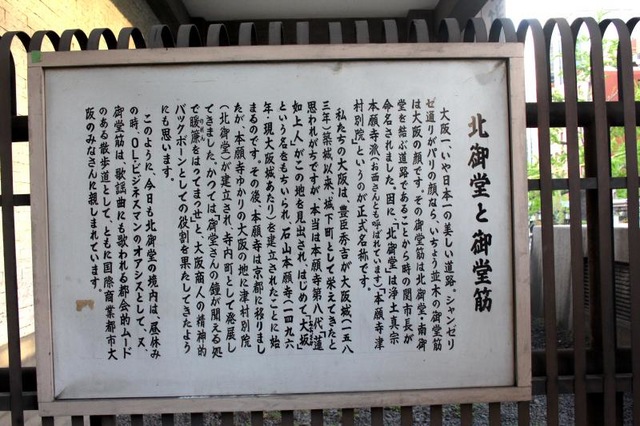 北御堂と御堂筋
大阪一、いや日本一の美しい道路。シャンゼリ
ゼ通りがパリの顔なら、いちょう並木の御堂筋
は大阪の顔です。その御堂筋は北御堂・南御
堂を結ぶ道路であることから時の関市長が
命名されました。因に、「北御堂」は浄土真宗
本願寺派(お西さんとも呼ばれています)「本願寺津
村別院」というのが正式名称です。
私たちの大阪は、豊臣秀吉が大阪城(一五八
三年)築城以来、城下町として栄えてきたと
思われがちですが、本当は本願寺第八代「蓮
如上人」がこの地を見出され、はじめて、「大坂」
という名をもちいられ、石山本願寺(一四九六
年・現大阪城あたり)を建立されたことに始
まるのです。その後、本願寺は京都に移りまし
たが、本願寺ゆかりの大阪の地に津村別院
(北御堂)が建立され、寺内町として発展し
てきました。かつては、「御堂さんの鐘が聞える処
で暖簾をはってまっせ」と、大阪商人の精神的
バックボーンとしての役割を果たしてきたよう
にも思います。
このように、今日も北御堂の境内は、昼休み
の時、OL・ビジネスマンのオアシスとして、又、
御堂筋は、歌謡曲にも歌われる都会的ムード
のある散歩道として、ともに国際商業都市大
阪のみなさんに親しまれています。